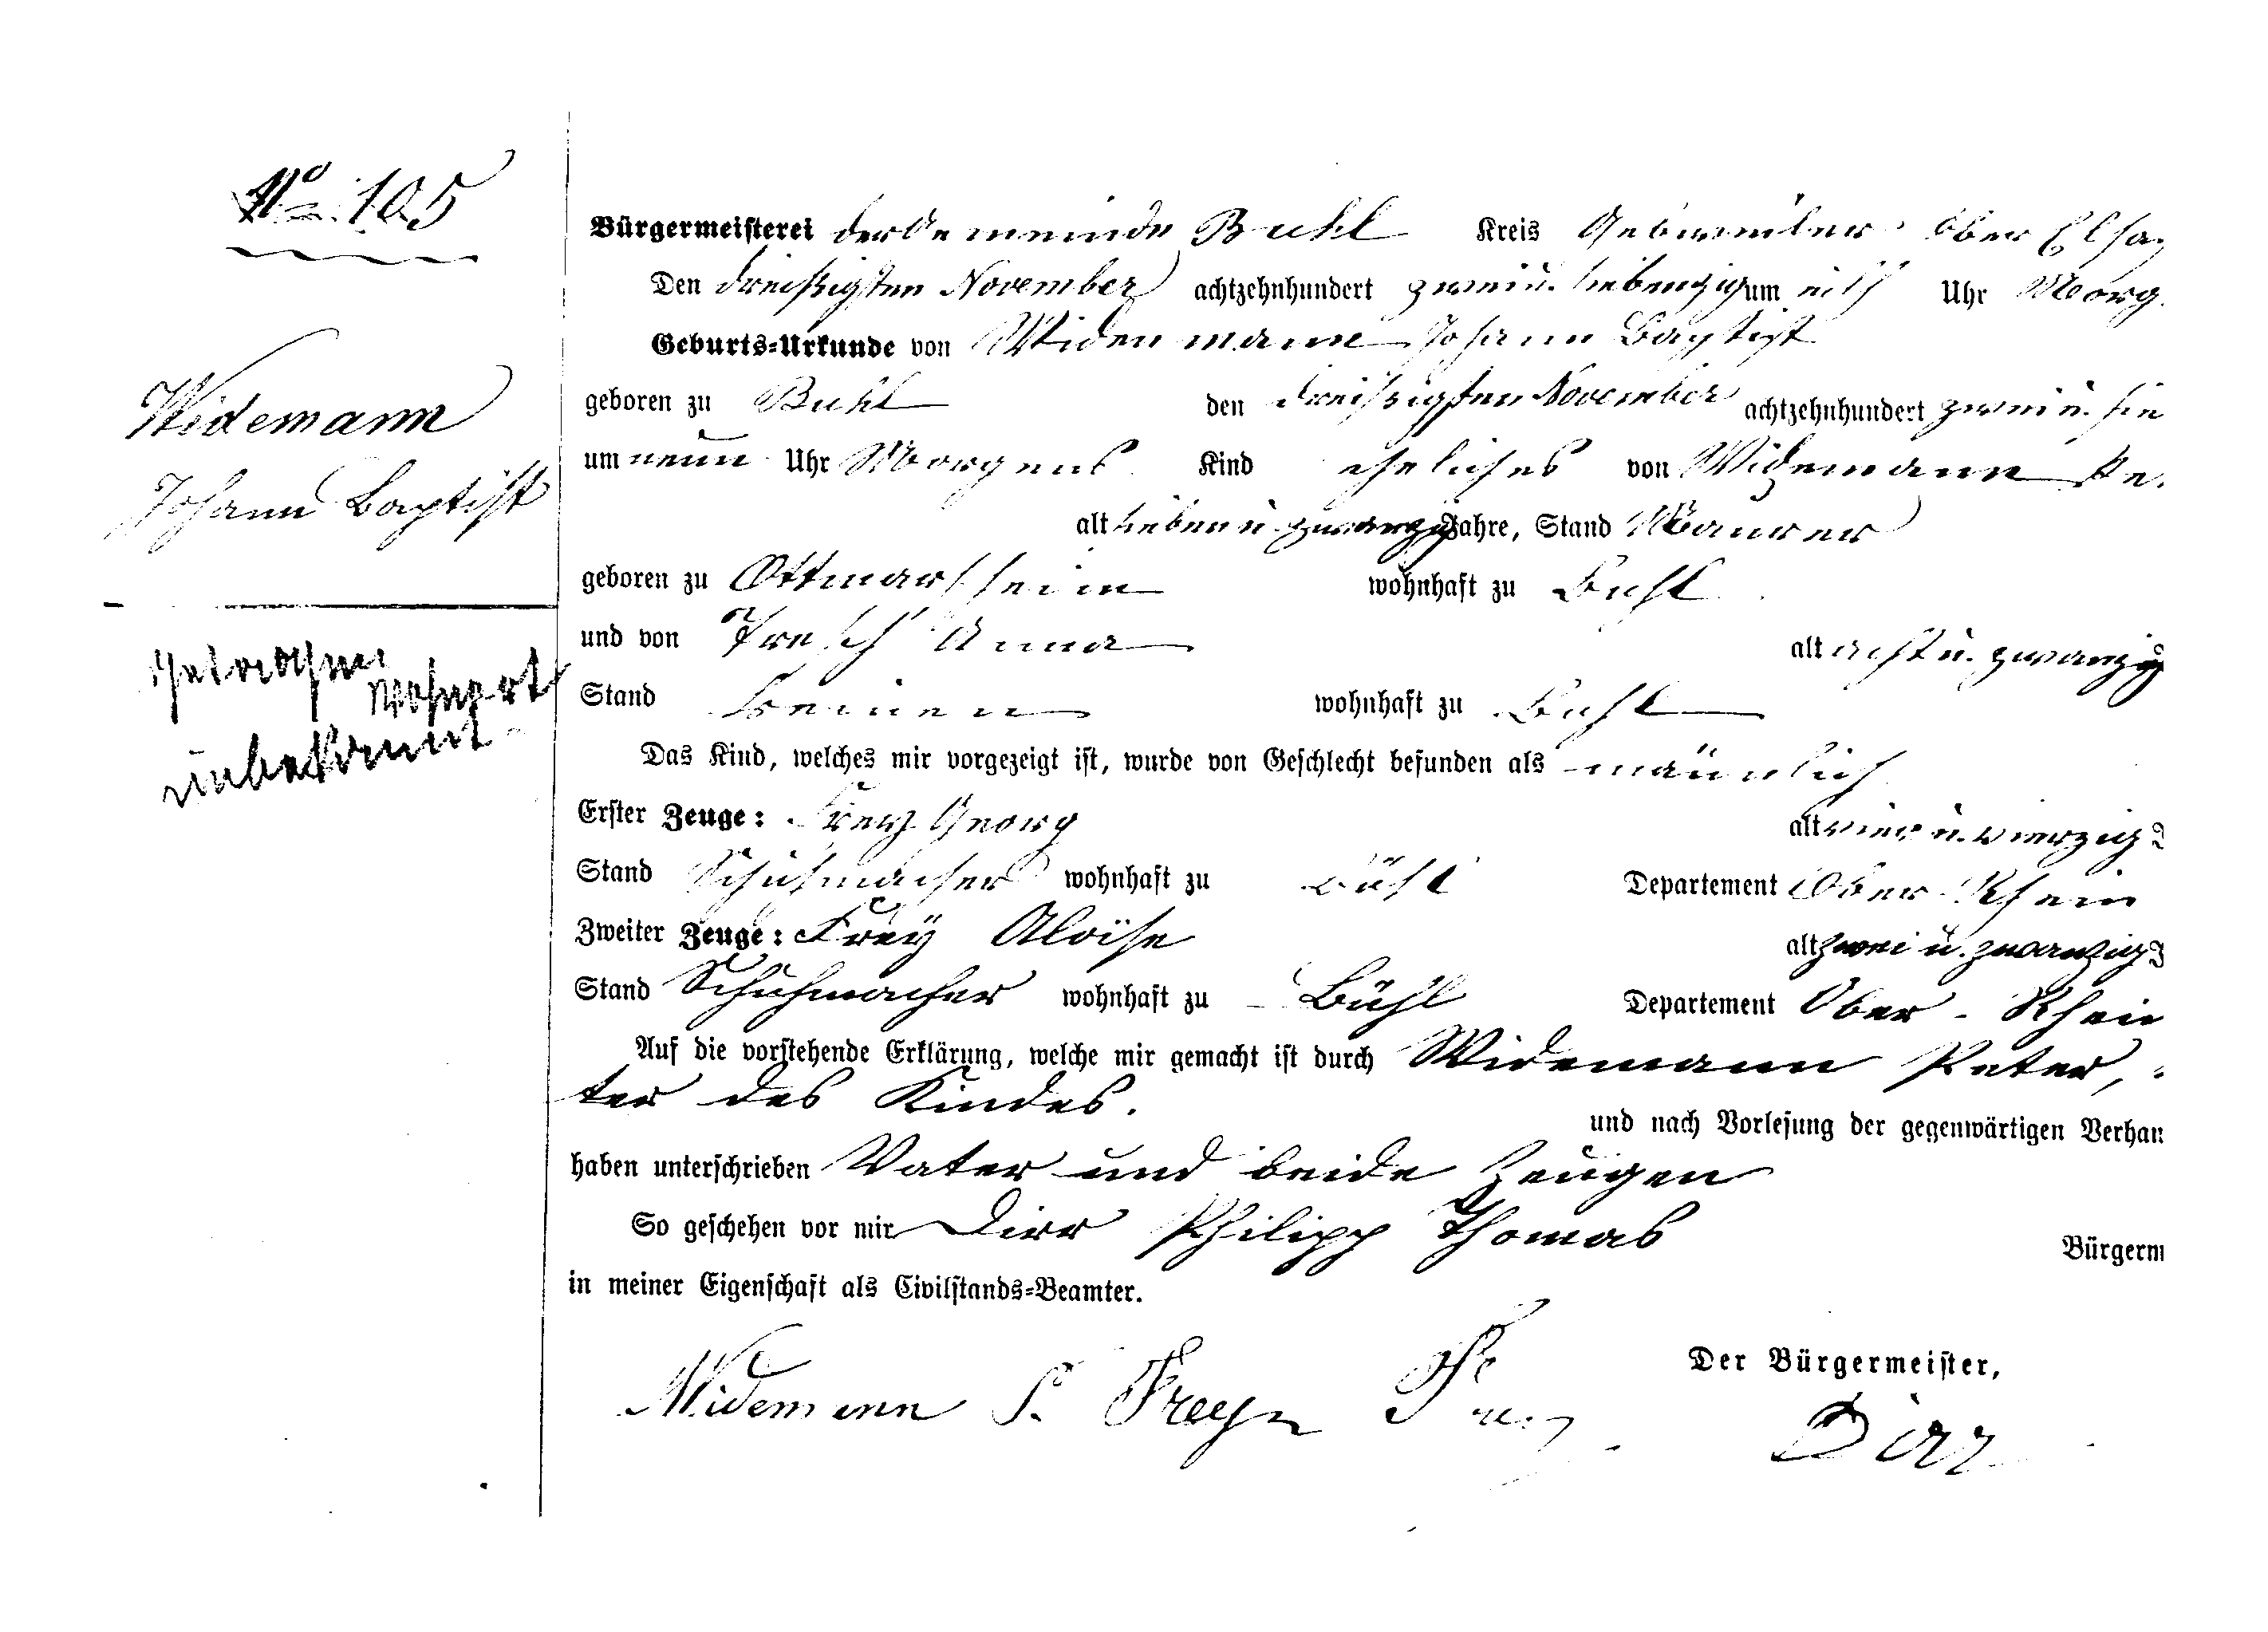 No 105
Widemann
Johann Baptist
gestorben
Wohnort
unbekannt
Bürgermeisterei der Gemeinde Buhl Kreis Gebweiler Ober Elsaß
Den dreißigsten November achtzehnhundert zwei u. siebenzig um eilf Uhr Morg.
Geburts-Urkunde von Widenmann Johann Baptist
geboren zu Buhl den dreißigsten November achtzehnhundert zwei u. sie
um neun Uhr Morgens Kind eheliches von Widemann Pe.
alt sieben u. zwanzig Jahre, Stand Maurer
geboren zu Ottmarsheim wohnhaft zu Buhl
und von Fresch Anna alt acht u. zwanzig
Stand keinen wohnhaft zu Buhl
Das Kind, welches mir vorgezeigt ist, wurde von Geschlecht befunden als männlich
Erster Zeuge: Frey Georg alt vier u. vierzig
Stand Schuhmacher wohnhaft zu Bühl Departement Ober-Rhein
Zweiter Zeuge: Frey Aloïse alt zwei u. zwanzig
Stand Schuhmacher wohnhaft zu Bühl Departement Ober-Rhein
Auf die vorstehende Erklärung, welche mir gemacht ist durch Widemann Peter,
ter des Kindes.
und nach Vorlesung der gegenwärtigen Verhan
haben unterschrieben Vater und beide Zeugen
So geschehen vor mir Dirr Philipp Thomas Bürgerm
in meiner Eigenschaft als Civilstands-Beamter.
Der Bürgermeister,
Widemann P. Frey Dirr